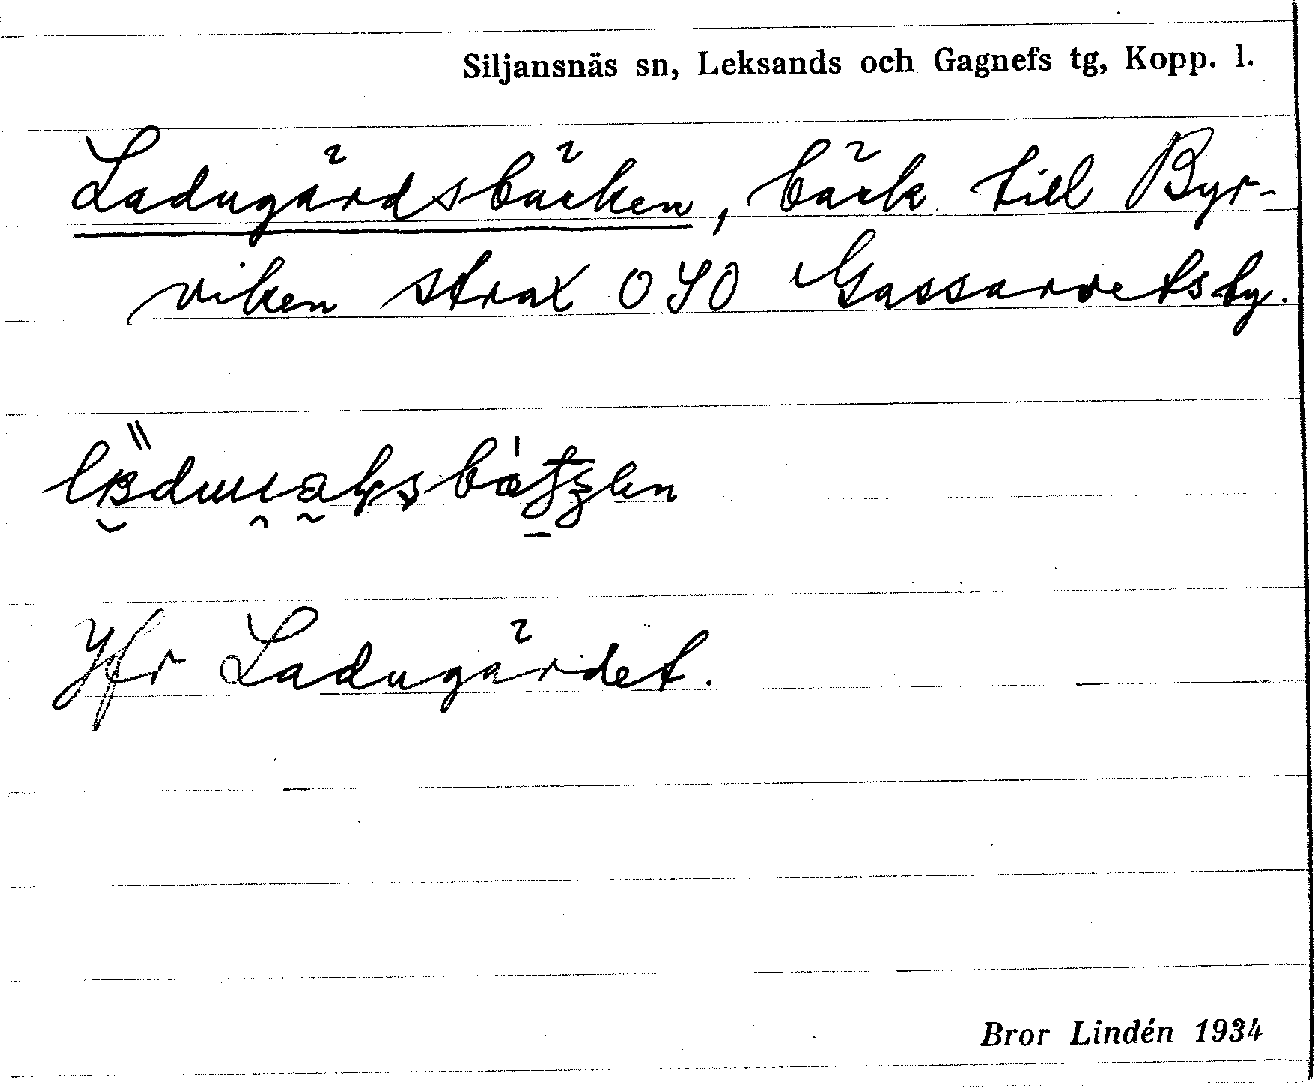 Siljansnäs sn, Leksands och Gagnefs tg, Kopp. l.
Ladugårdsbäcken, bäck till Byr-
viken strax OSO Gassarvets by.
Jfr Ladugårdet.
Bror Lindén 1934